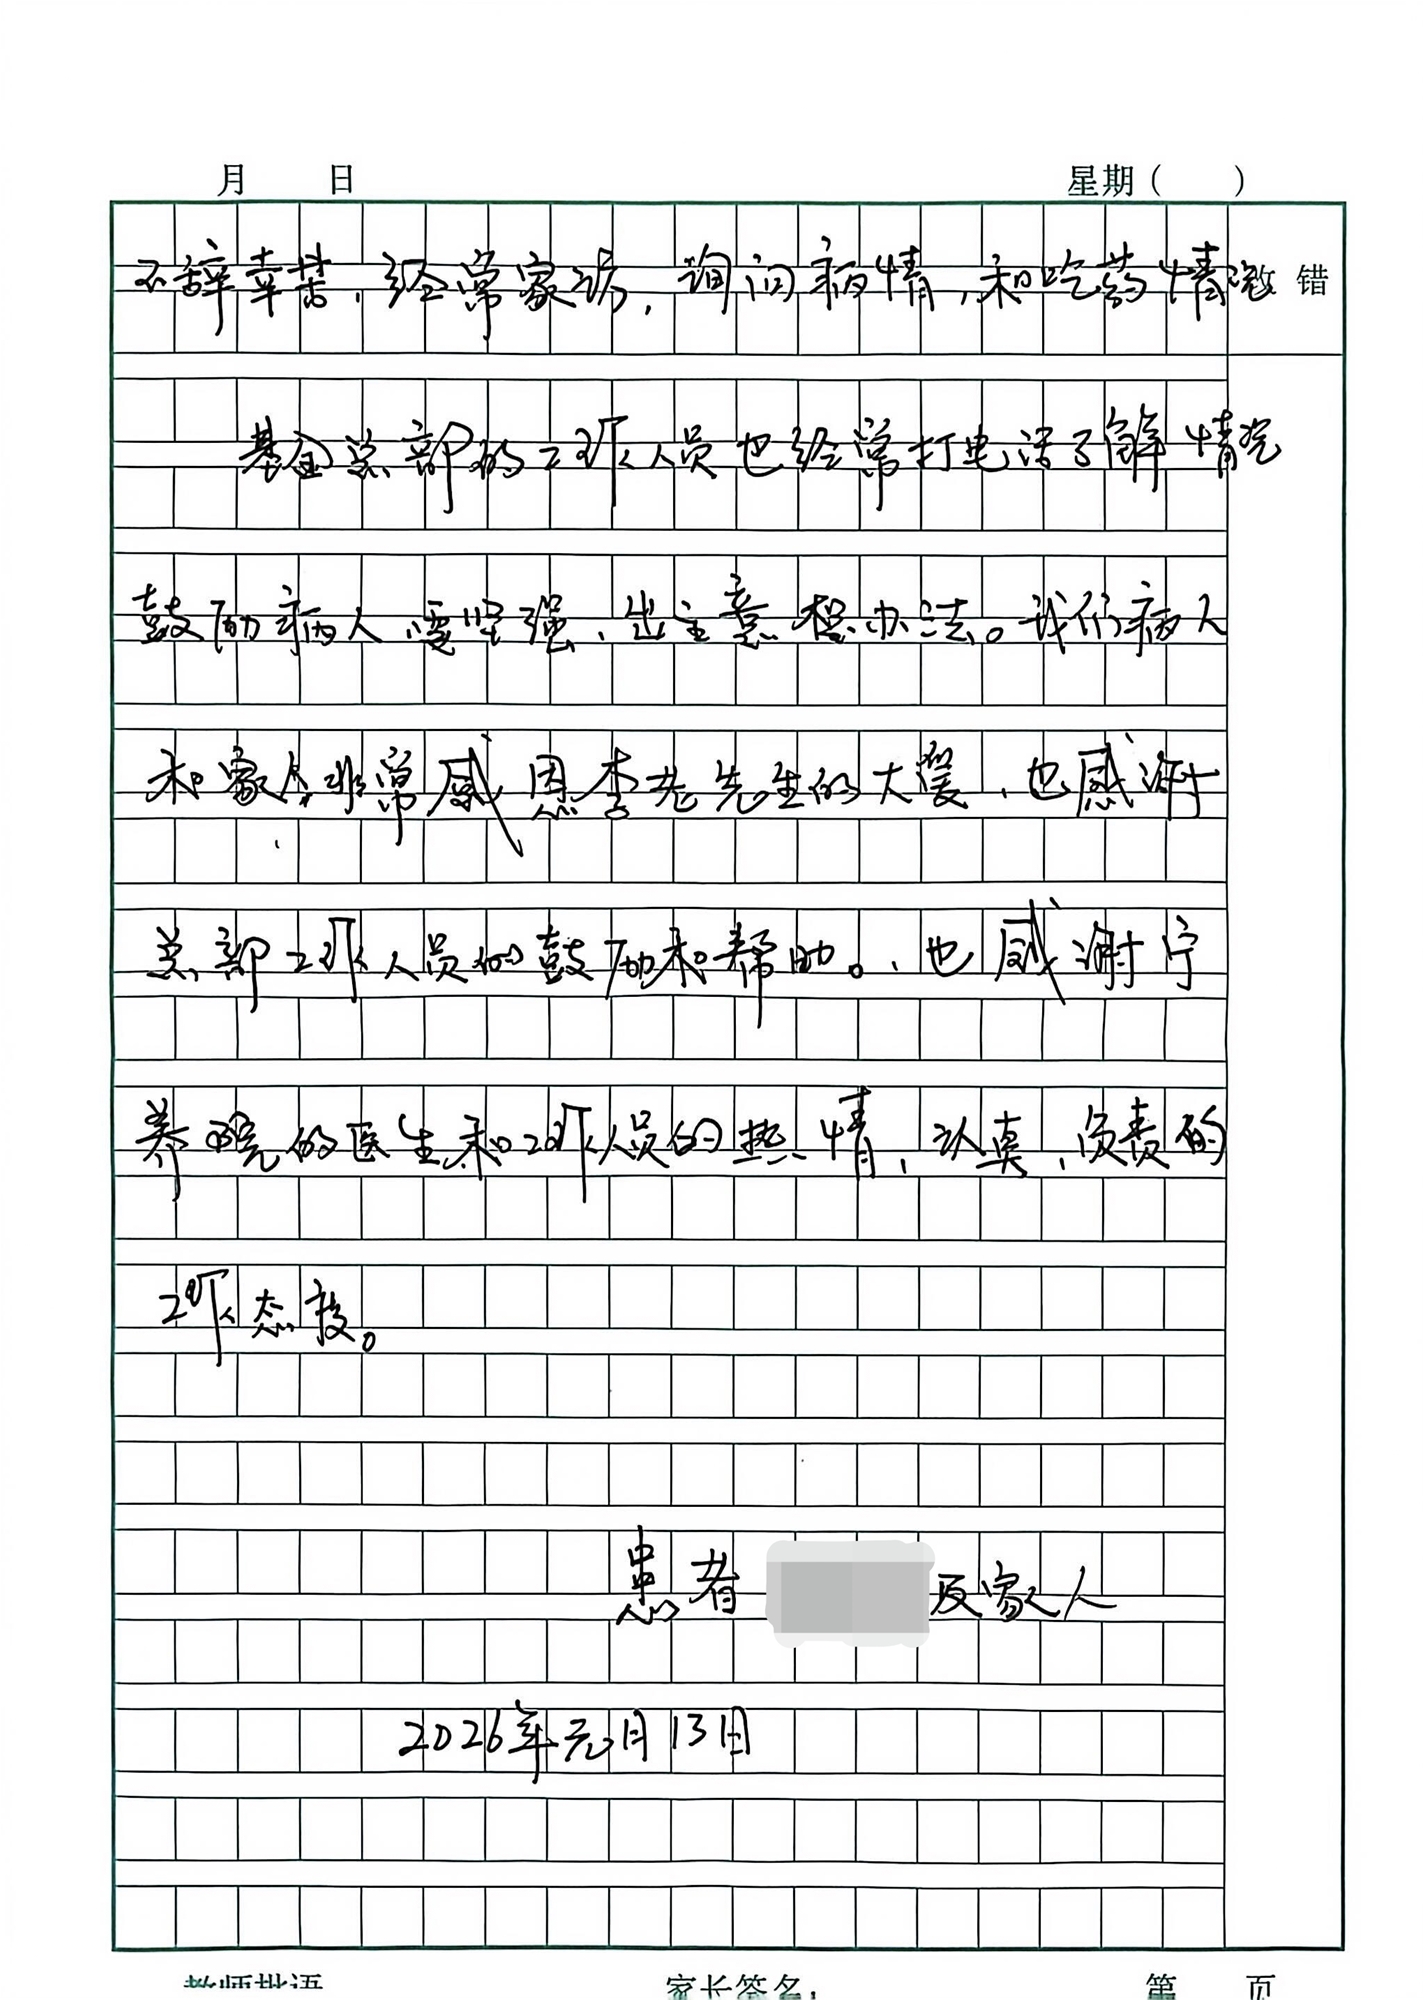 月 日 星期( )
不辞幸苦,经常家访,询问病情,和吃药情况 改错
基金总部的工作人员也经常打电话了解情况
鼓励病人要坚强、出主意想办法。我们病人
和家人非常感恩李老先生的大爱,也感谢
总部工作人员的鼓励和帮助。、也感谢宁
养院的医生和工作人员的热情、认真、负责的
工作态度。
患者 及家人
2026年元月13日
教师批语 家长签名: 第 页